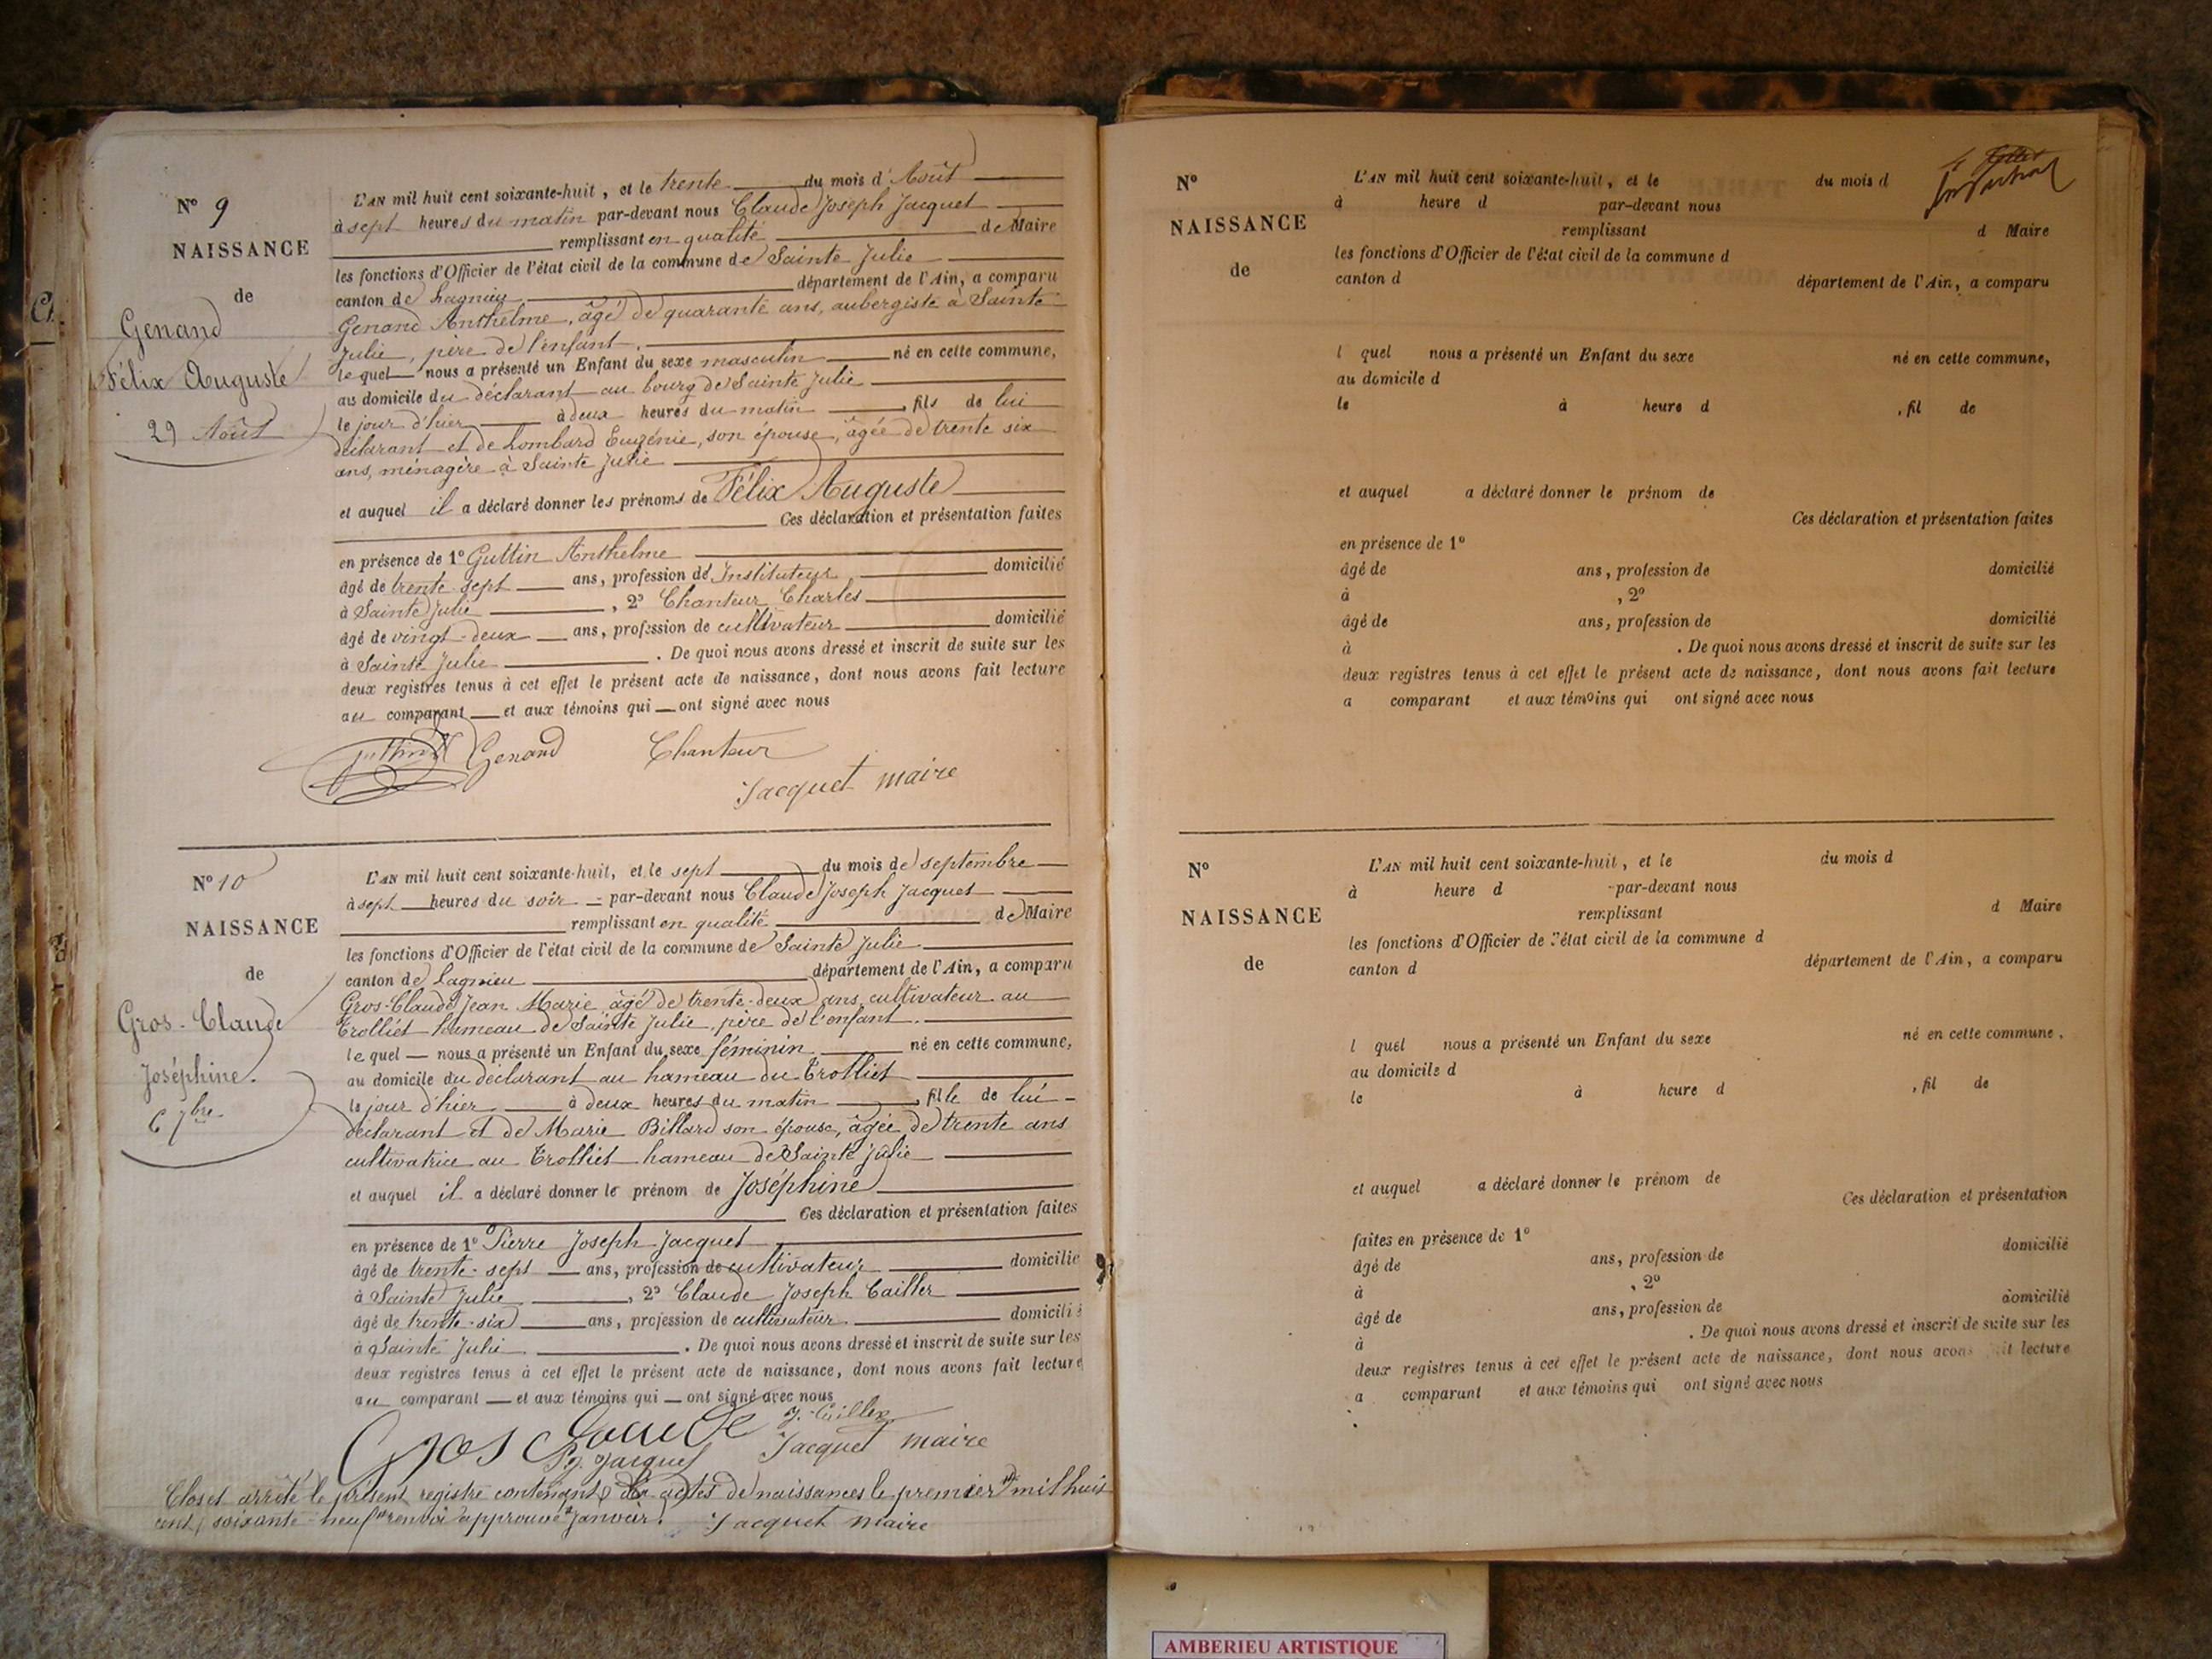 Nº 9
NAISSANCE
de
Genand
Félix Auguste
29 Août
L'AN mil huit cent soixante-huit, et le trente du mois d'Août
à sept heures du matin par-devant nous Claude Joseph Jacquet
remplissant en qualité de Maire
les fonctions d'Officier de l'état civil de la commune de Sainte Julie
canton de Lagnieu département de l'Ain, a comparu
Genand Anthelme, âgé de quarante ans, aubergiste à Sainte
Julie, père de l'enfant.
lequel nous a présenté un Enfant du sexe masculin né en cette commune,
au domicile du déclarant au bourg de Sainte Julie
le jour d'hier à deux heures du matin, fils de lui
déclarant et de Lombard Eugénie, son épouse, âgée de trente six
ans, ménagère à Sainte Julie
et auquel il a déclaré donner les prénoms de Félix Auguste
Ces déclaration et présentation faites
en présence de 1º Guttin Anthelme
âgé de trente sept ans, profession de Instituteur domicilié
à Sainte Julie, 2º Chanteur Charles
âgé de vingt-deux ans, profession de cultivateur domicilié
à Sainte Julie. De quoi nous avons dressé et inscrit de suite sur les
deux registres tenus à cet effet le présent acte de naissance, dont nous avons fait lecture
au comparant et aux témoins qui ont signé avec nous
Guttin Genand Chanteur
Jacquet maire
Nº 10
NAISSANCE
de
Gros-Claude
Joséphine.
6 7bre
L'AN mil huit cent soixante-huit, et le sept du mois de septembre
à sept heures du soir par-devant nous Claude Joseph Jacquet
remplissant en qualité de Maire
les fonctions d'Officier de l'état civil de la commune de Sainte Julie
canton de Lagnieu département de l'Ain, a comparu
Gros-Claude Jean Marie, âgé de trente-deux ans, cultivateur au
Trolliet hameau de Sainte Julie, père de l'enfant.
lequel nous a présenté un Enfant du sexe féminin né en cette commune,
au domicile du déclarant au hameau du Trolliet
le jour d'hier à deux heures du matin, fille de lui
déclarant et de Marie Billard son épouse, âgée de trente ans
cultivatrice au Trolliet hameau de Sainte Julie
et auquel il a déclaré donner le prénom de Joséphine
Ces déclaration et présentation faites
en présence de 1º Pierre Joseph Jacquet
âgé de trente-sept ans, profession de cultivateur domicilié
à Sainte Julie, 2º Claude Joseph Cailler
âgé de trente-six ans, profession de cultivateur. domicilié
à Sainte Julie. De quoi nous avons dressé et inscrit de suite sur les
deux registres tenus à cet effet le présent acte de naissance, dont nous avons fait lecture
au comparant et aux témoins qui ont signé avec nous
Gros Claude J. Cailler
P.J. Jacquet Jacquet maire
Clos et arrêté le présent registre contenant dix actes de naissances le premier mil huit
cent soixante-neuf renvoi approuvé janvier. Jacquet maire
Nº
NAISSANCE
de
L'AN mil huit cent soixante-huit, et le du mois d
à heure d par-devant nous
remplissant d Maire
les fonctions d'Officier de l'état civil de la commune d
canton d département de l'Ain, a comparu
l quel nous a présenté un Enfant du sexe né en cette commune,
au domicile d
le à heure d, fil de
et auquel a déclaré donner le prénom de
Ces déclaration et présentation faites
en présence de 1º
âgé de ans, profession de domicilié
à , 2º
âgé de ans, profession de domicilié
à . De quoi nous avons dressé et inscrit de suite sur les
deux registres tenus à cet effet le présent acte de naissance, dont nous avons fait lecture
a comparant et aux témoins qui ont signé avec nous
Nº
NAISSANCE
de
L'AN mil huit cent soixante-huit, et le du mois d
à heure d par-devant nous
remplissant d Maire
les fonctions d'Officier de l'état civil de la commune d
canton d département de l'Ain, a comparu
l quel nous a présenté un Enfant du sexe né en cette commune.
au domicile d
le à heure d , fil de
et auquel a déclaré donner le prénom de
Ces déclaration et présentation
faites en présence de 1º
âgé de ans, profession de domicilié
à , 2º
âgé de ans, profession de domicilié
à . De quoi nous avons dressé et inscrit de suite sur les
deux registres tenus à cet effet le présent acte de naissance, dont nous avons fait lecture
a comparant et aux témoins qui ont signé avec nous
AMBERIEU ARTISTIQUE